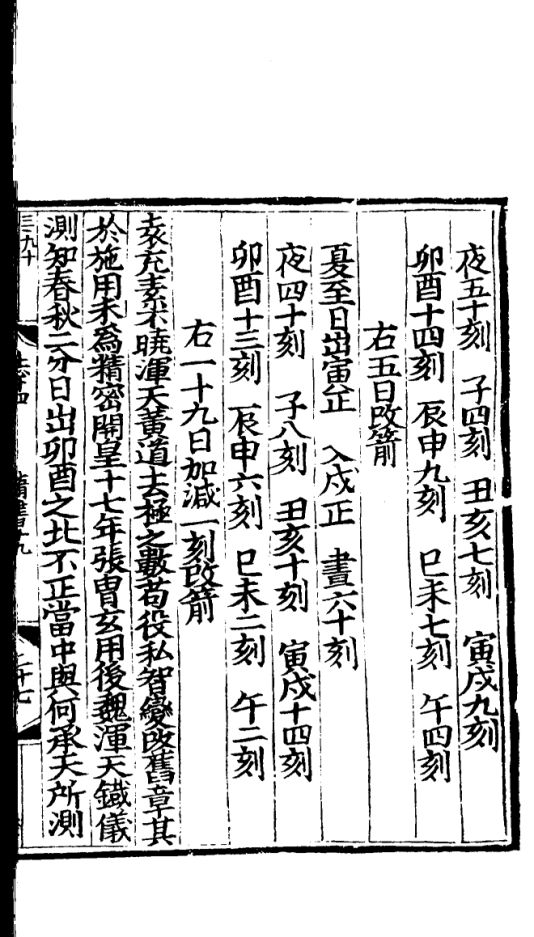 夜五十刻　子四刻　丑亥七刻　寅戌九刻
卯酉十四刻　辰申九刻　巳未七刻　午四刻
右五日改箭
夏至日出寅正　入戌正　晝六十刻
夜四十刻　子八刻　丑亥十刻　寅戌十四刻
卯酉十三刻　辰申六刻　巳未二刻　午二刻
右一十九日加減一刻改箭
袁充素不曉渾天黃道去極之數苟役私智變改舊章其
於施用未爲精密開皇十七年張胄玄用後魏渾天鐵儀
測知春秋二分日出卯酉之北不正當中與何承天所測